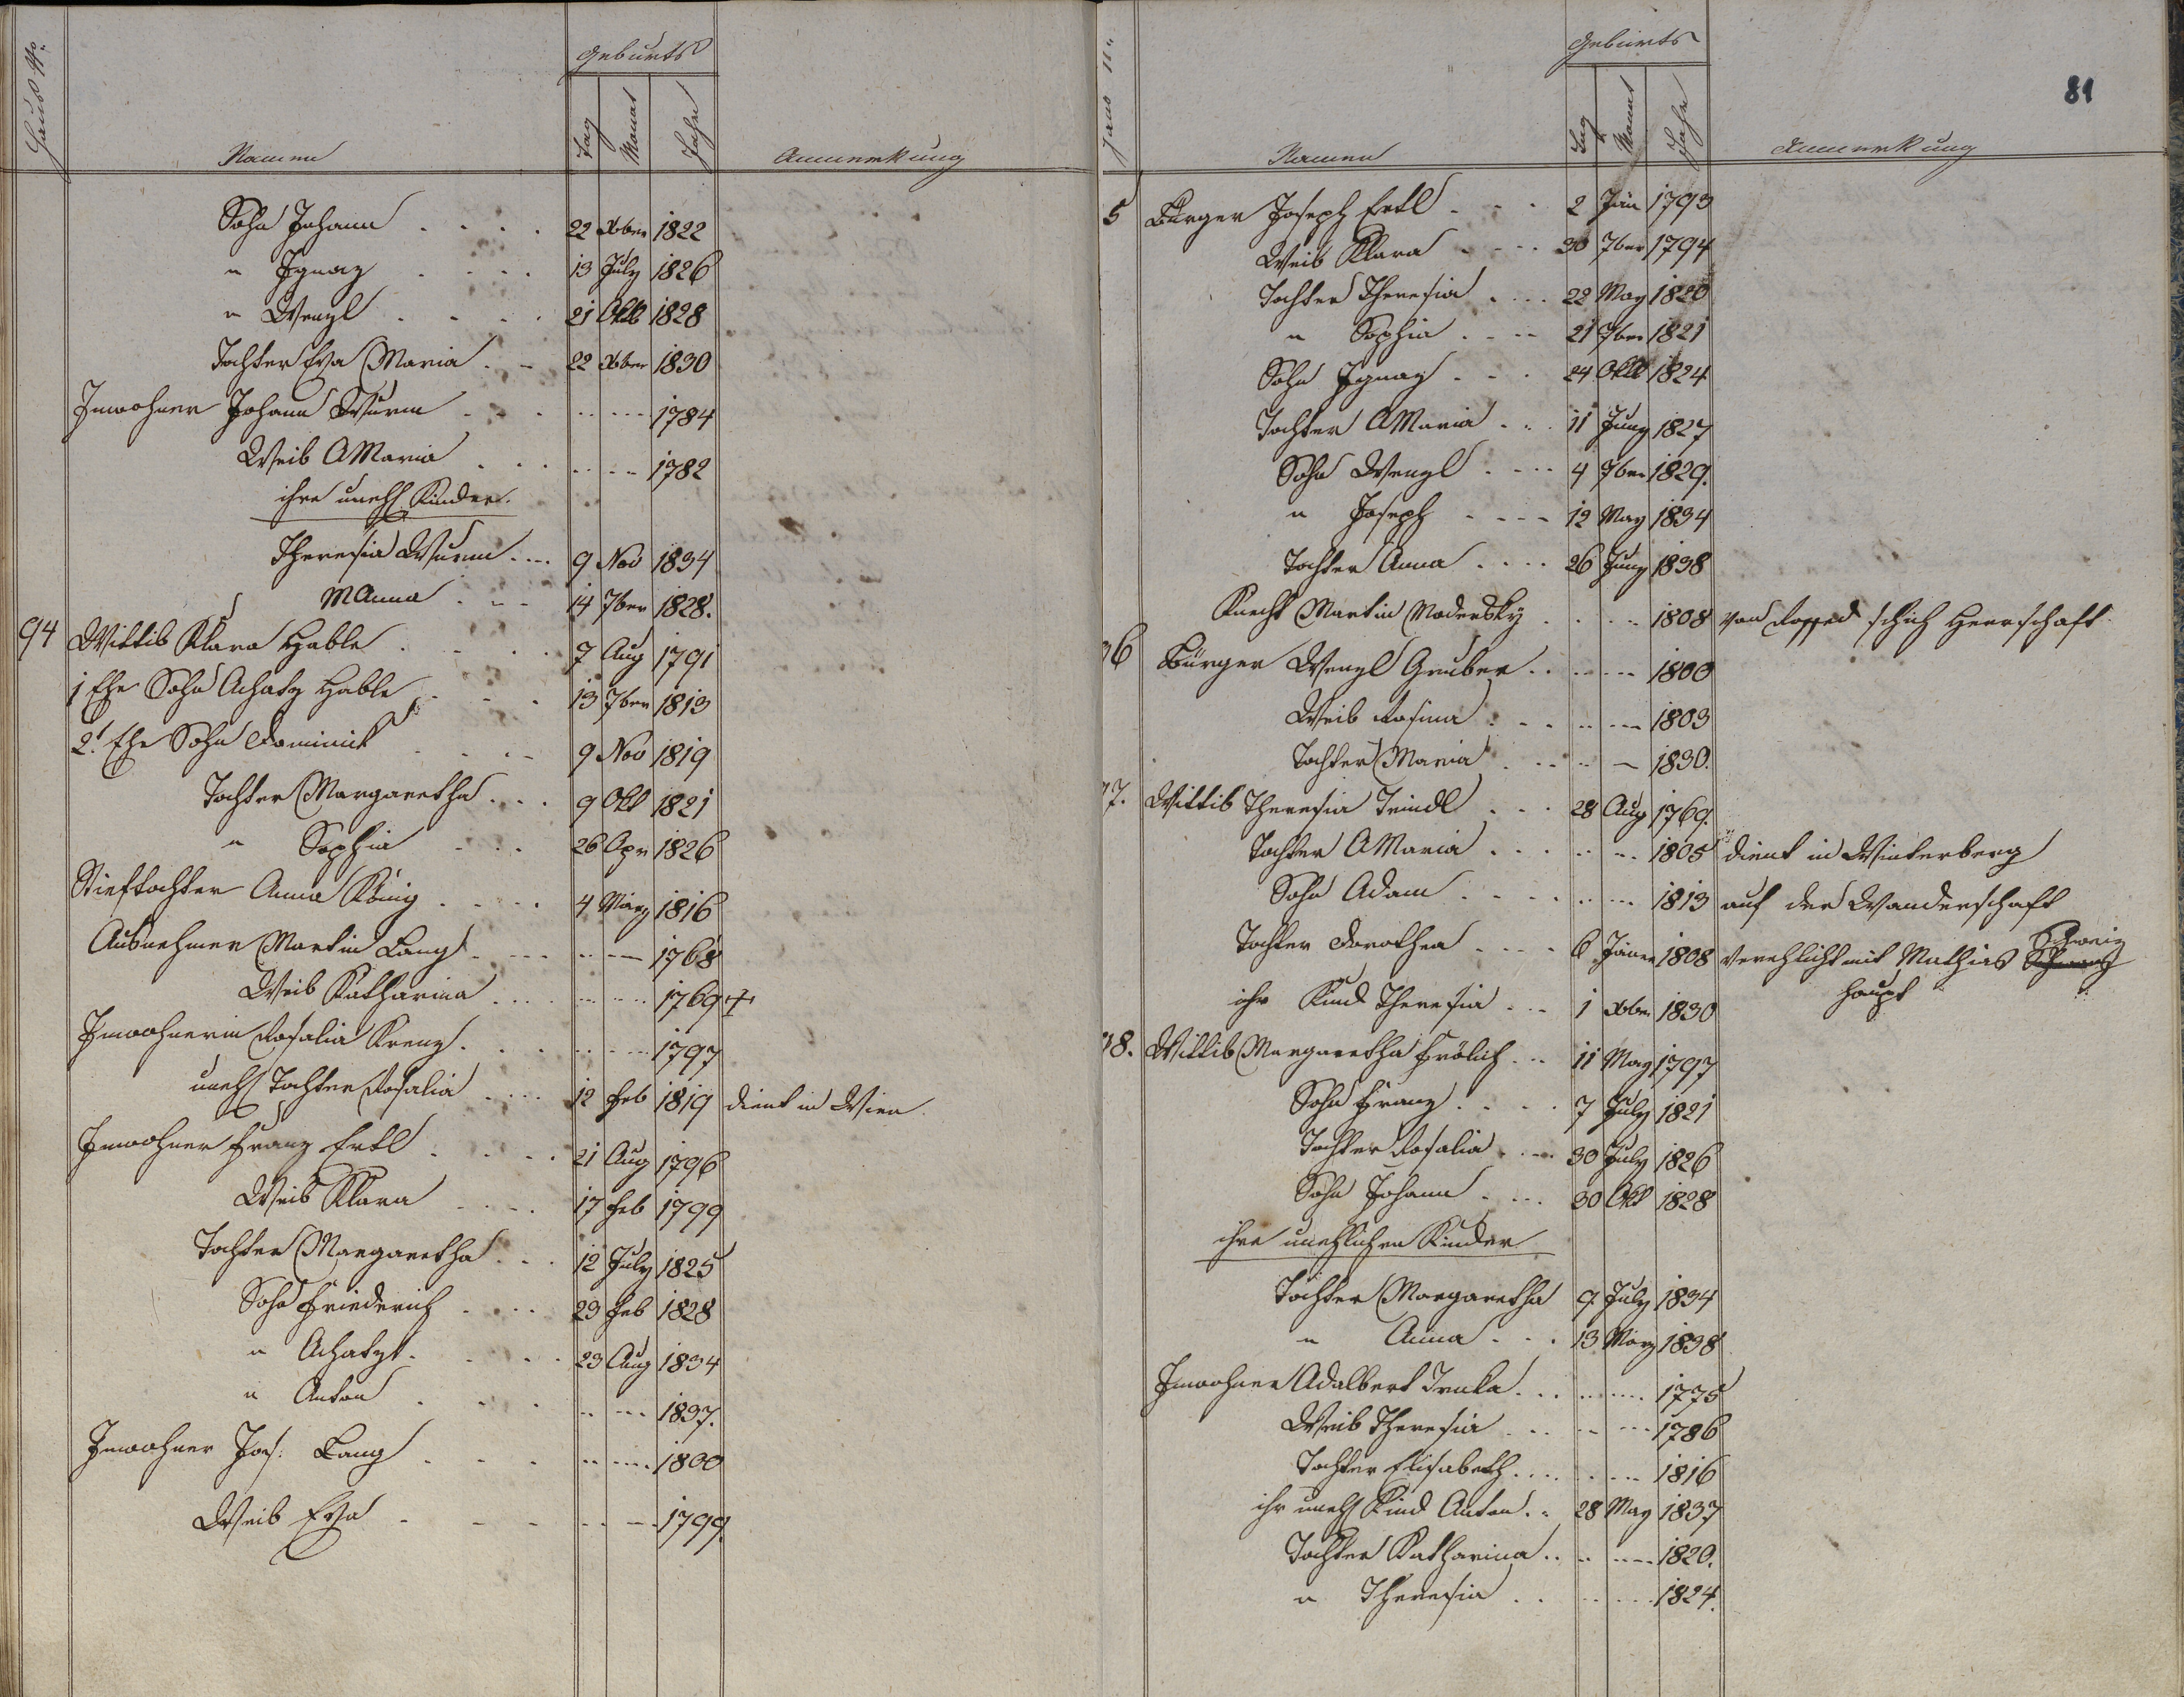 Haus No.
Namen
Geburts
Tag
Monat
Jahr
Anmerkung
Sohn Johann . . . . 22 Xber 1822
" Ignaz . . . . 13 July 1826
" Wenzl . . . . 21 Oktb 1828
Tochter Eva Maria . - 22 Xber 1830
Inwohner Johann Wurm . . . 1784
Weib AMaria . . . 1782
ihre unehl Kinder.
Theresia Wurm . . . . 9 Nov 1834
MAnna . . . 14 7ber 1828.
94 Wittib Klara Hable . . . 7 Aug 1791
1 Ehe Sohn Achatz Hable . . . 13 7ber 1813
2t Ehe Sohn Dominik . . . 9 Nov 1819
Tochter Margaretha . . . 9 Okt 1821
" Sophia . . . 26 Apr 1826
Stieftochter Anna König . . . . 4 März 1816
Ausnehmer Martin Lang . . . 1768
Weib Katharina . . . . 1769 +
Inwohnerin Rosalia Krenz . . . 1797
unehl Tochter Rosalia . . . . 12 Feb 1819 dient in Wien
Inwohner Franz Ertl . . . . 21 Aug 1796
Weib Klara . . . . 17 Feb 1799
Tochter Margaretha . . . 12 July 1825
Sohn Friederich . . . . 23 Feb 1828
" Achatz . . . . 23 Aug 1834
" Anton . . . . 1837.
Inwohner Jos: Lang . . . 1800
Weib Eva . . . . 1799.
81
Haus No.
Namen
Geburts
Tag
Monat
Jahr
Anmerkung
5 Bürger Joseph Ertl . . . 2 Jän 1793
Weib Klara . . . . 30 7ber 1794
Tochter Theresia . . . . 22 May 1820
" Sophia . . . . 21 7ber 1821
Sohn Ignaz . . . 24 Oktb 1824
Tochter AMaria . . . 11 Juny 1827
Sohn Wenzl . . . . 4 7ber 1829.
" Joseph . . . . 12 May 1834
Tochter Anna . . . . 26 Juny 1838
Knecht Martin Modersky . . . . 1808 von schich Herrschaft
96 Bürger Wenzl Gruber . . . . 1800
Weib Rosina . . . . 1803
Tochter Maria . . . . 1830.
97. Wittib Theresia Teindl . . . 28 Aug 1769.
Tochter AMaria . . . . 1805 dient in Winterberg
Sohn Adam . . . . 1813 auf der Wanderschaft
Tochter Dorothea . . . . 6 Jäner 1808 verehlicht mit Mathias Schweig
haupt
ihr Kind Theresia . . . 1 Xber 1830
98. Wittib Margaretha Frölich . . 11 May 1797
Sohn Franz . . . . 7 July 1821
Tochter Rosalia . . . . 30 July 1826
Sohn Johann . . . . 30 Okt 1828
ihre unehlichen Kinder
Tochter Margaretha 9 July 1834
" Anna . . . 13 März 1838
Inwohner Adalbert Truka . . . . 1775
Weib Theresia . . . . 1786
Tochter Elisabeth . . . . 1816
ihr unehl Kind Anton . . 28 May 1837
Tochter Katharina . . . . 1820.
" Theresia . . . . 1824.